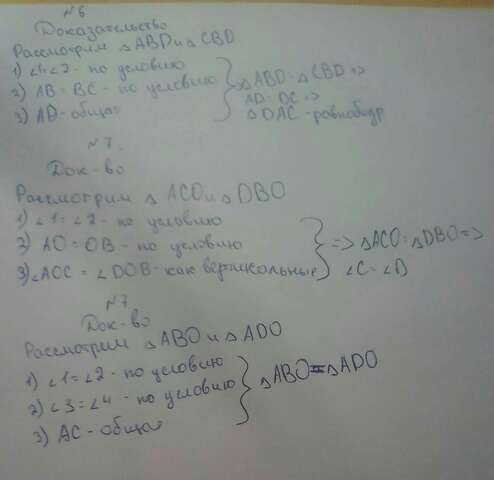 N6
Доказательство
Рассмотрим △ABD и △CBD
1) ∠1=∠2 - по условию
2) AB = BC - по условию
3) AD - общая
△ABD = △CBD =>
AD = DC =>
△DAC - равнобедр
N7.
Док-во
Рассмотрим △ ACO и △ DBO
1) ∠1=∠2 - по условию
2) AO = OB - по условию
3) ∠AOC = ∠DOB - как вертикольные
=> △ACO = △DBO =>
∠C = ∠D
N7
Док-во
Рассмотрим △ABO и △ ADO
1) ∠1=∠2 - по условию
2) ∠3=∠4 - по условию
3) AC - общая
△ABO = △ADO